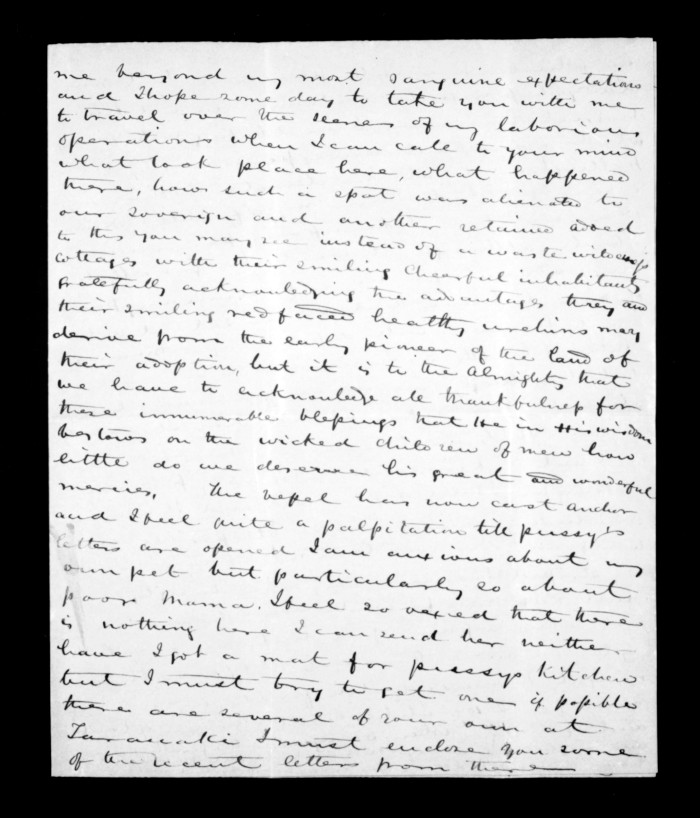 me beyond my most sanguine expectations
and I hope some day to take you with me
to travel over the scenes of my laborious
operations when I can call to your mind
what took place here, what happened
there, how such a spot was alienated to
our sovereign and another retained added
to this you may see instead of a waste
cottages with their smiling cheerful inhabitants
gratefully acknowledging the advantages they and
their smiling red faced healthy urchins may
derive from the early pioneer of the land of
their adoption, but it is to the Almighty that
we have to acknowledge all thankfulness for
these innumerable blessings that He in His wisdom
bestows on the wicked children of men how
little do we deserve his great and wonderful
mercies. The vessel has now cast anchor
and I feel quite a palpitation till pussy's
letters are opened I am anxious about my
own pet but particularly so about
poor Mama. I feel so vexed that there
is nothing here I can send her neither
have I got a mat for pussys kitchen
but I must try to get one if possible
there are several of your own at
Taranaki I must enclose you some
of the recent letters from there